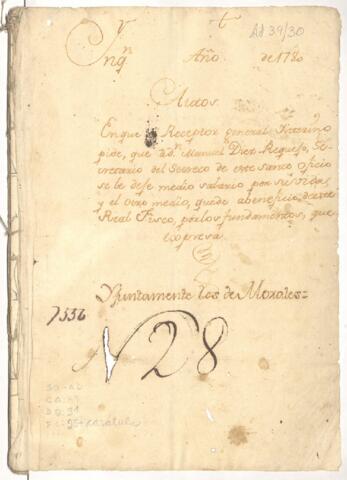 Ad 39/30
Ynqn
Año de 1780
Autos
En que el Receptor general Interino
pide, que a dn. Manuel Diez Requejo, Se-
cretario del Secreto de este santo Oficio
se le deje medio salario por sus dias,
y el otro medio, quede a beneficio de este
Real Fisco, por los fundamentos, que
expresa.
Yuntamente los de Morales=
7556
N 28